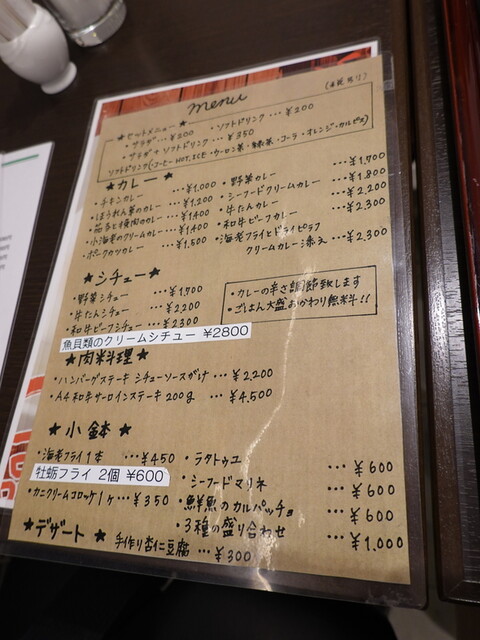 menu
(税抜価格)
★セットメニュー★
・サラダ…¥200 ・ソフトドリンク…¥200
・サラダ+ソフトドリンク…¥350
ソフトドリンク(・コーヒーHOT, ICE・ウーロン茶・緑茶・コーラ・オレンジ・カルピス)
★カレー★
・チキンカレー …¥1,000
・ほうれん草のカレー …¥1,200
・茄子と挽肉のカレー …¥1,400
・小海老のクリームカレー …¥1,400
・ポークカツカレー …¥1,500
・野菜カレー …¥1,700
・シーフードクリームカレー …¥1,800
・牛たんカレー …¥2,200
・和牛ビーフカレー …¥2,300
・海老フライとドライピラフ
クリームカレー添え …¥2,300
★シチュー★
・野菜シチュー …¥1,700
・牛たんシチュー …¥2,200
・和牛ビーフシチュー …¥2,300
魚貝類のクリームシチュー ¥2800
・カレーの辛さ調節致します
・ごはん大盛おかわり無料!!
★肉料理★
・ハンバーグステーキ シチューソースがけ…¥2,200
・A4和牛サーロインステーキ200g …¥4,500
★小鉢★
・海老フライ1本 …¥450
牡蛎フライ 2個 ¥600
・カニクリームコロッケ1ヶ…¥350
・ラタトゥユ …¥600
・シーフードマリネ …¥600
・鮮魚のカルパッチョ …¥600
・3種の盛り合わせ …¥1,000
★デザート★
手作り杏仁豆腐 …¥300